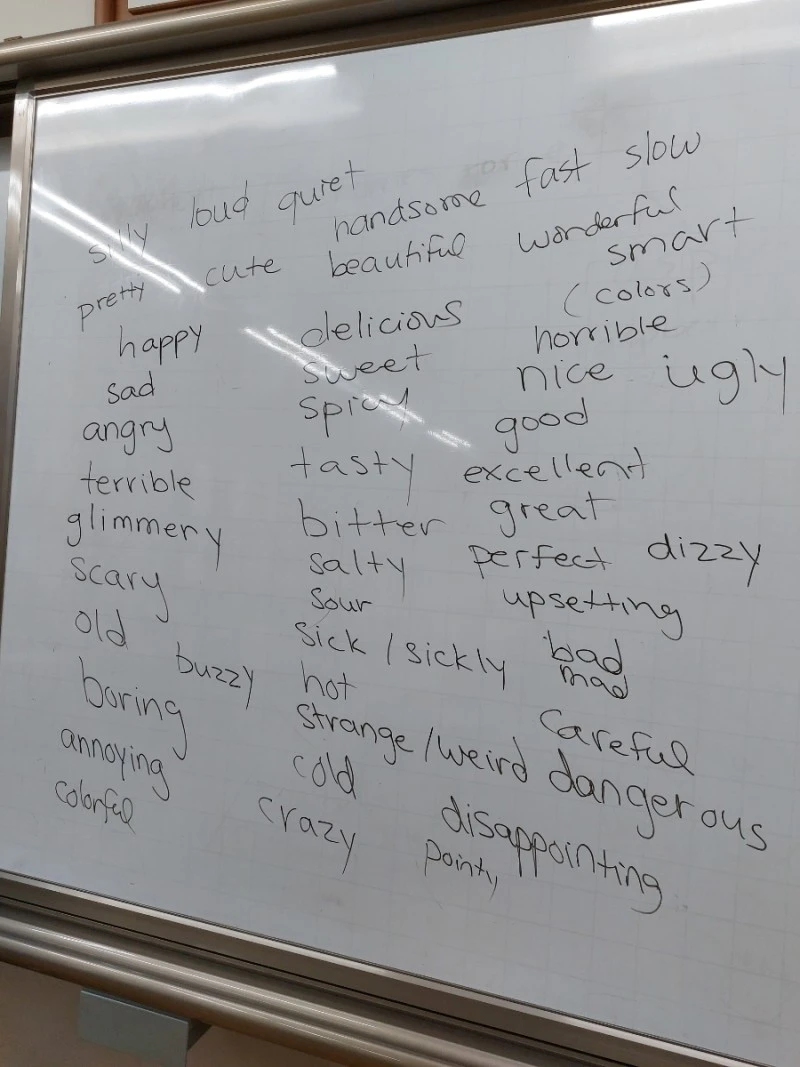 silly loud quiet handsome fast slow
pretty cute beautiful wonderful smart
happy delicious (colors)
sad sweet horrible
angry spicy nice ugly
terrible tasty good
glimmery bitter excellent
scary salty great
old sour perfect dizzy
buzzy sick/sickly upsetting
boring hot bad
annoying strange/weird mad
colorful cold careful
crazy dangerous
pointy disappointing